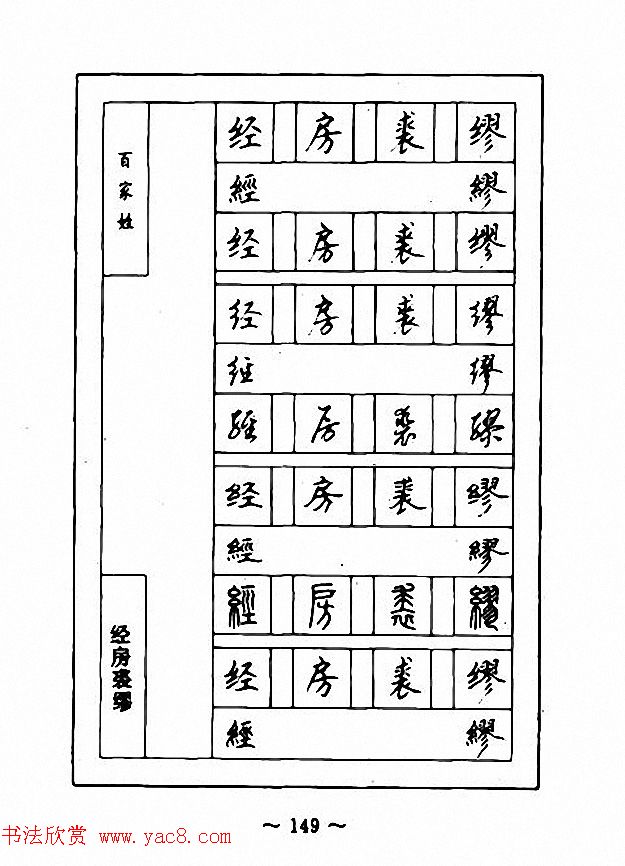 百家姓
经房裘缪
经 房 裘 缪
經 繆
经 房 裘 缪
经 房 裘 缪
经 缪
經 房 裘 繆
经 房 裘 缪
經 繆
經 房 裘 繆
经 房 裘 缪
經 繆
~ 149 ~
书法欣赏 www.yac8.com